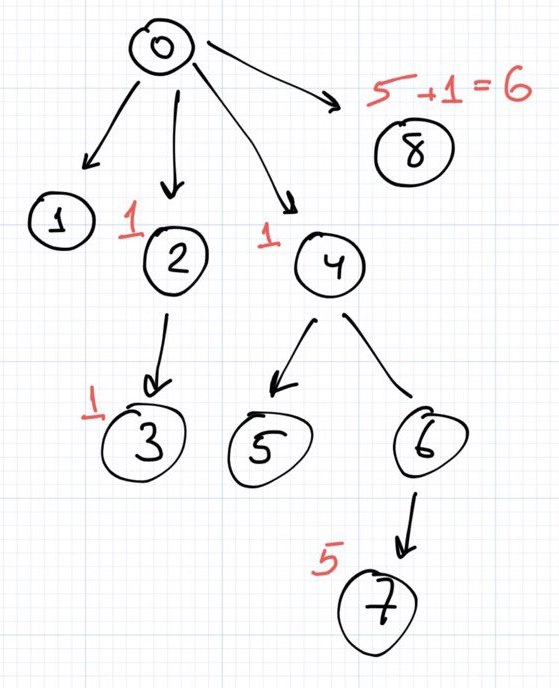 0
5+1=6
8
1
1
2
1
4
1
3
5
6
5
7